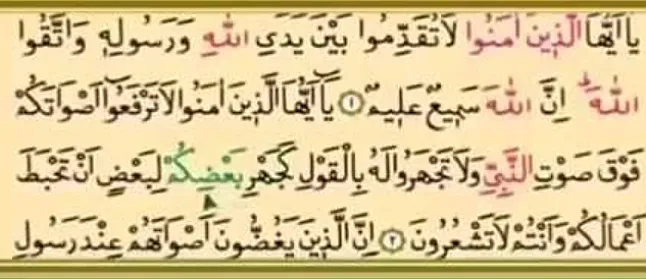 يَا اَيُّهَا الَّذ۪ينَ اٰمَنُوا لَا تُقَدِّمُوا بَيْنَ يَدَيِ اللّٰهِ وَرَسُولِه۪ وَاتَّقُوا
اللّٰهَۜ اِنَّ اللّٰهَ سَم۪يعٌ عَل۪يمٌ ﴿١﴾ يَٓا اَيُّهَا الَّذ۪ينَ اٰمَنُوا لَا تَرْفَعُٓوا اَصْوَاتَكُمْ
فَوْقَ صَوْتِ النَّبِيِّ وَلَا تَجْهَرُوا لَهُ بِالْقَوْلِ كَجَهْرِ بَعْضِكُمْ لِبَعْضٍ اَنْ تَحْبَطَ
اَعْمَالُكُمْ وَاَنْتُمْ لَا تَشْعُرُونَ ﴿٢﴾ اِنَّ الَّذ۪ينَ يَغُضُّونَ اَصْوَاتَهُمْ عِنْدَ رَسُولِ